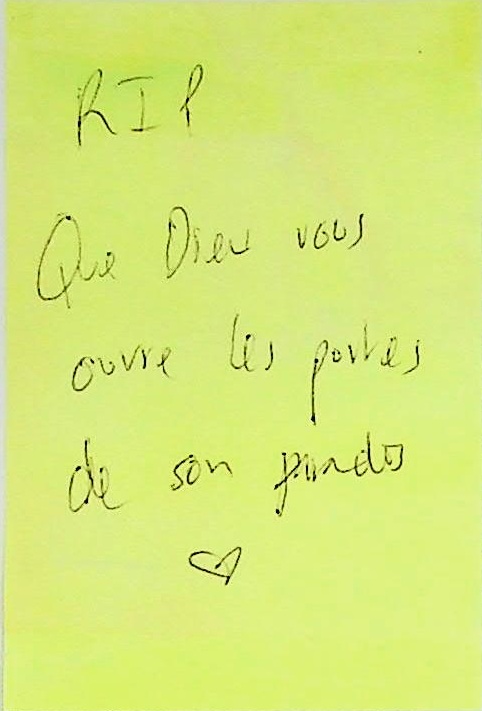 RIP
Que Dieu vous
ouvre les portes
de son paradis
♡